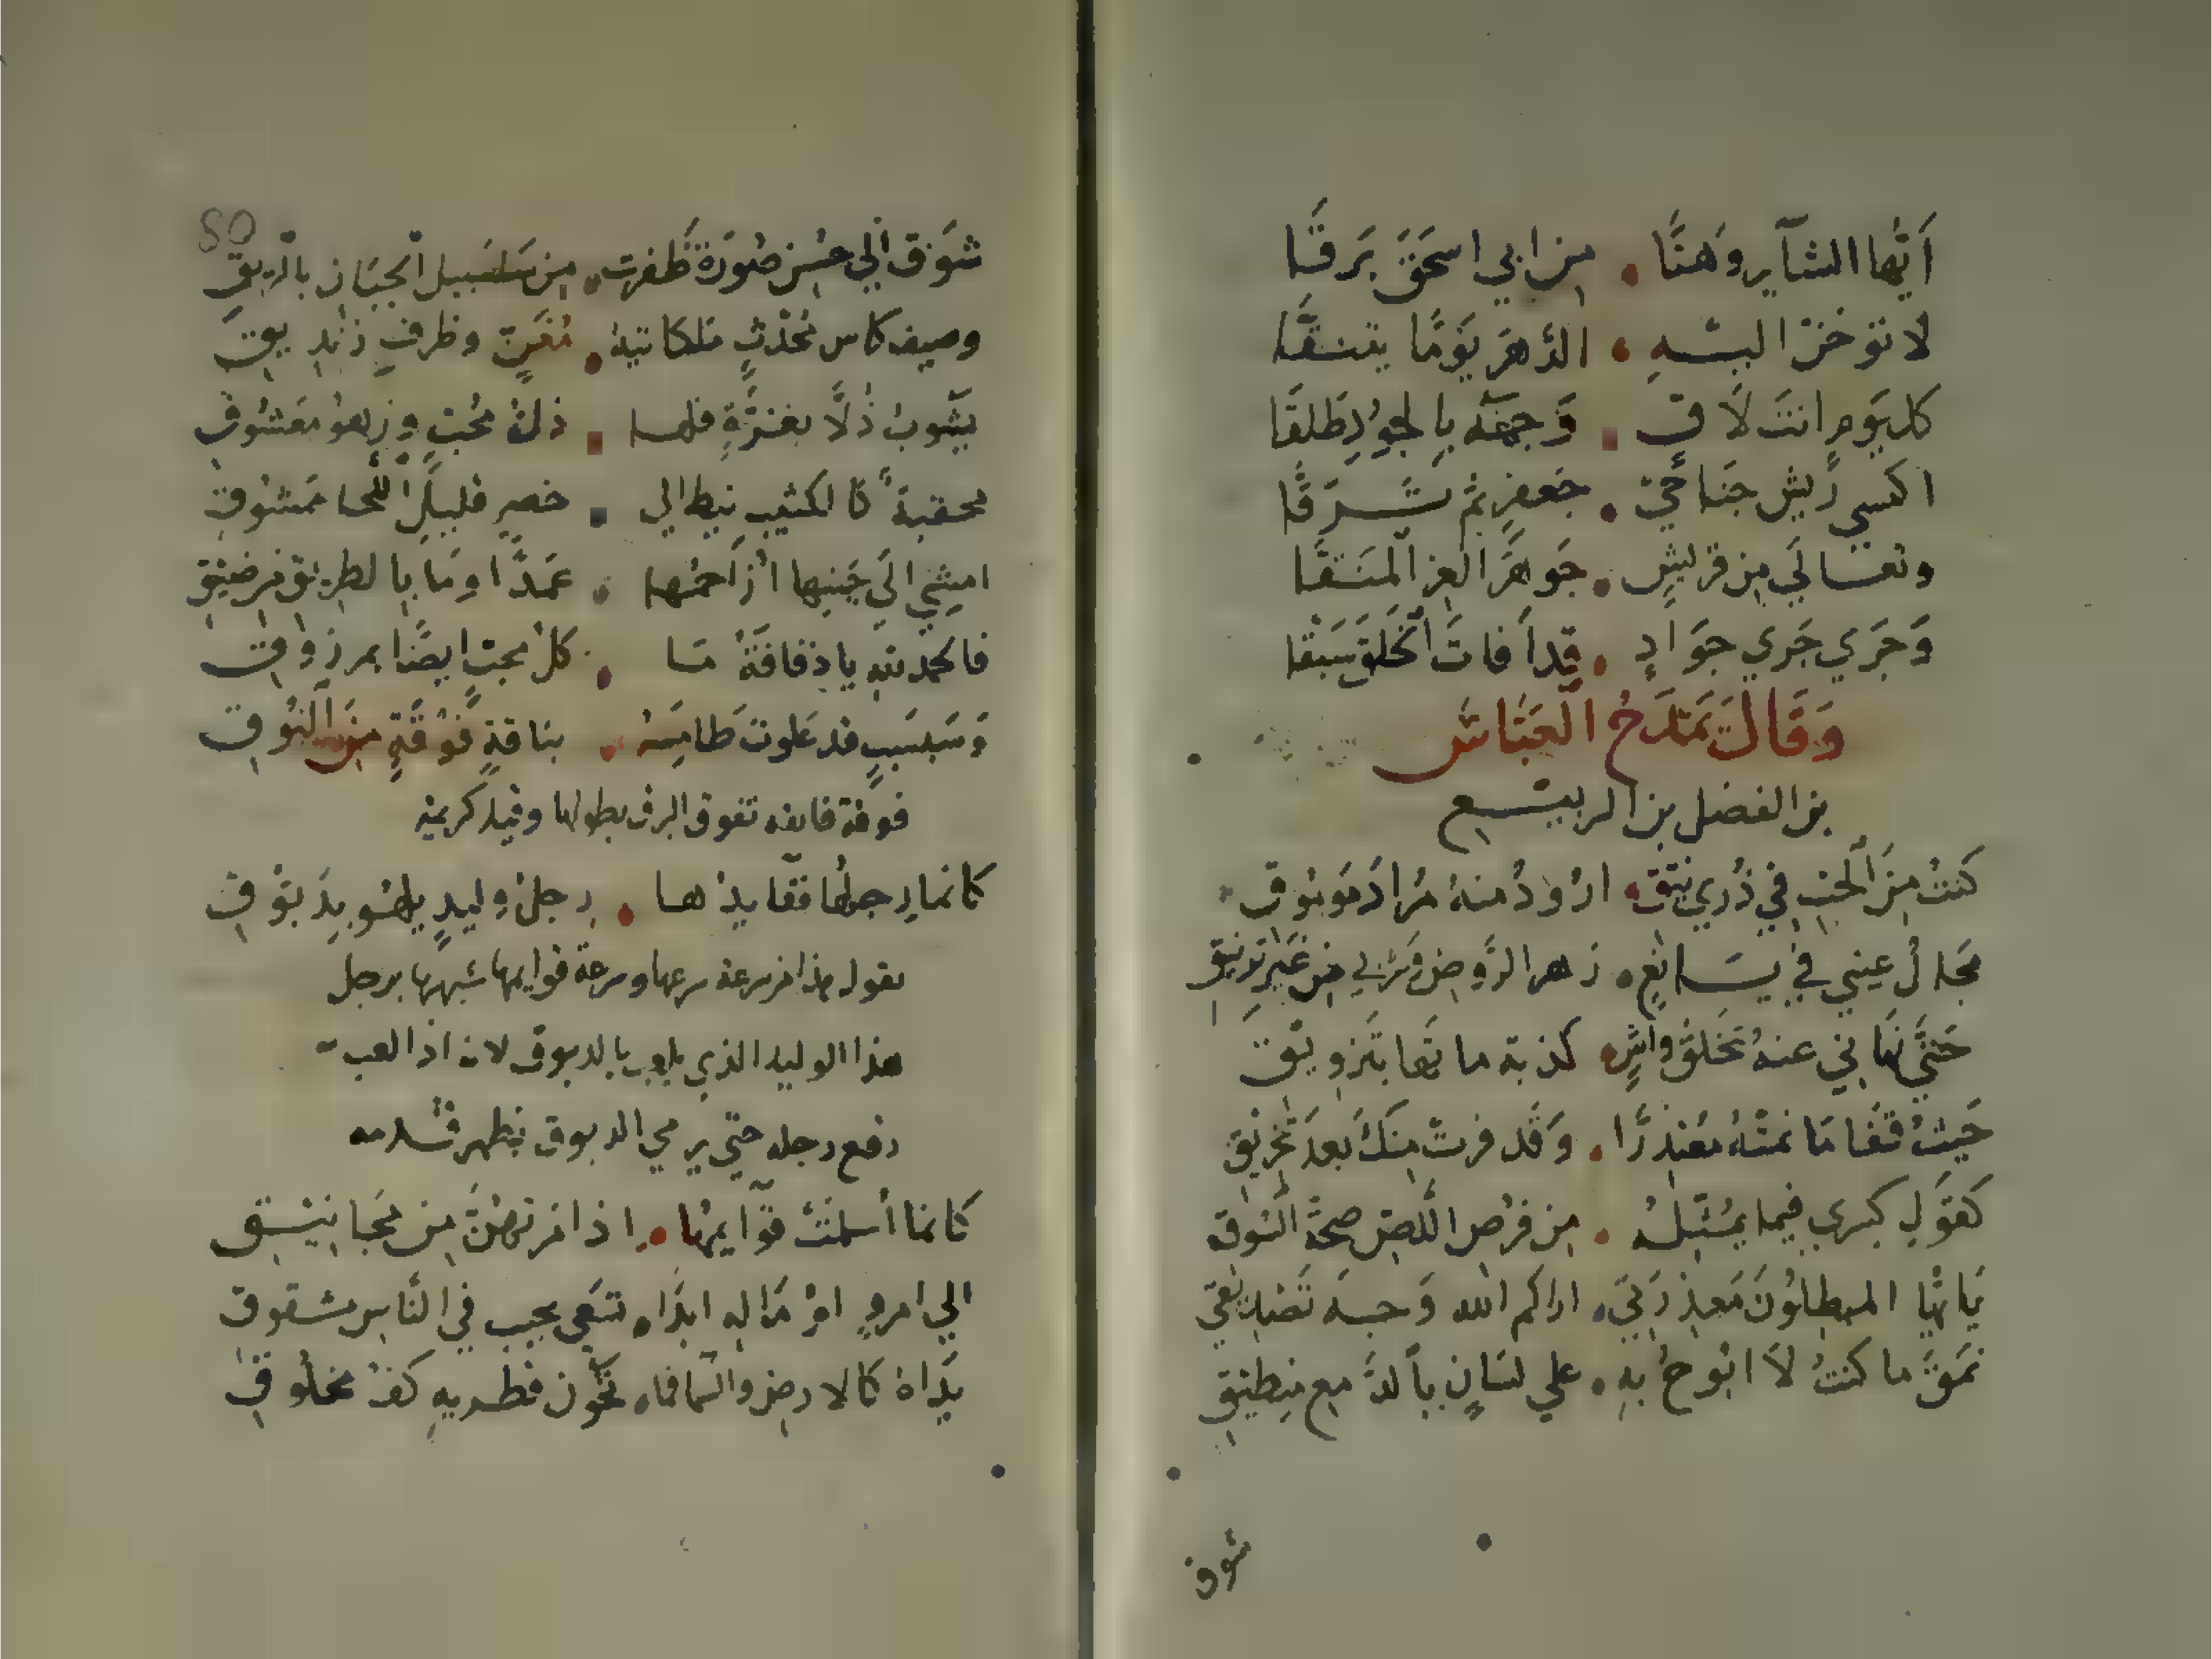 اَيُّها الشآيم وَهنًا . من ابي اسحَق بَرقَا
لا تؤخر البتّهِ . الدَّهرَ يَومًا يتنقَّا
كل يَومٍ انتَ لَاقٍ . وَجهَهُ بالجوُدِ طَلقَا
اكسي ريشَ جنَاحَيْ . جَعفرٍ ثمَّ تَرقَّا
وتعَالَي من قريشٍ . جَوهَرَ العز المنَقَّا
وَجَري جَري جَوَادٍ . قد اَفاتَ الخَلقَ سَبْقا
وَقَالَ يَمدَحُ العَبَّاسَ
بن الفضل بن الربيع
كنتُ مِنَ الحبّ في ذُري نيق . ارُودُ منهُ مُرادَ مَوموُقِ
مَجَالُ عيني في يَانعٍ . زهر الرَّوض وشربي من غَير ترنيقِ
حَتَّي نَهَاني عنهُ تخَلّقُ واشٍ . كذبة مانهَا بتَزويقِ
جَبتُ قفَا مَا نمَتهُ معُتذرًا . وَقَد فزتُ منكَ بعدَ تخريق
كقَولِ كسري فيما يمثّلهُ . مِن فرُصِ اللّصِ صحَّةُ السّوقِ
يَا ايّها المبطلوُنَ مَعذرَتي . اراكم الله وَجهَ تَصديقي
نَمَّ بمَا كنتُ لَا ابُوحُ بهِ . علي لسَانٍ بالدَّمعِ مِنطيقِ
شوق
80
شَوَق الَي حسُن صُورَة ظَفرت . من سَلسَبيل الجنَان بالرّيقِ
وصيف كاس مُحدّثٍ مَلكا تيهُ . مُغَنٍّ وظرفِ زندِيقِ
يشُوبُ ذُلًّا بعزَّةٍ فلها . ذلُّ مُحبٍّ وزهوُ مَعشُوقِ
محقبةً كا الكثيب نيط الي . خصرٍ قليلِ اللّحا مَمشُوقِ
امشِي الَي جَنبها اُزاحمُها . عَمدًا ومَا با لطريق من ضيقِ
فا لحمد لله يا ذفافَةُ مَا . كلُّ محبٍّ ايضًا بمرزوقِ
وَسَبسَبٍ قد عَلوت طَامِسَهُ . بنَاقةٍ فُوقَةٍ منَ النُوقِ
فوقة فايقه تفوق البرق بطولها وقيل كريمة
كانما رجلُها قفَا يدهَا . رجلُ وليدٍ يلهُو بدَبّوقِ
يقول هذا من سرعة سيرها وسرعة قوايمها شبهها برجل
هذا الوليد الذي يلعب بالدبوق لانه اذا لعب
رفع رجله حتي يرمي الدبوق فيظهر قدامه
كانما أسلمَتْ قوَآيمهُا . اذا مَرتهُنَّ من مَجَانيقِ
الي امرءٍ امُّ مَالهِ ابدًا . تسَعي بجيب في النَّاس مشقوقِ
يدَاهُ كالارضِ والسّما فما . تخُون قطريهِ كفُّ مخلُوقِ